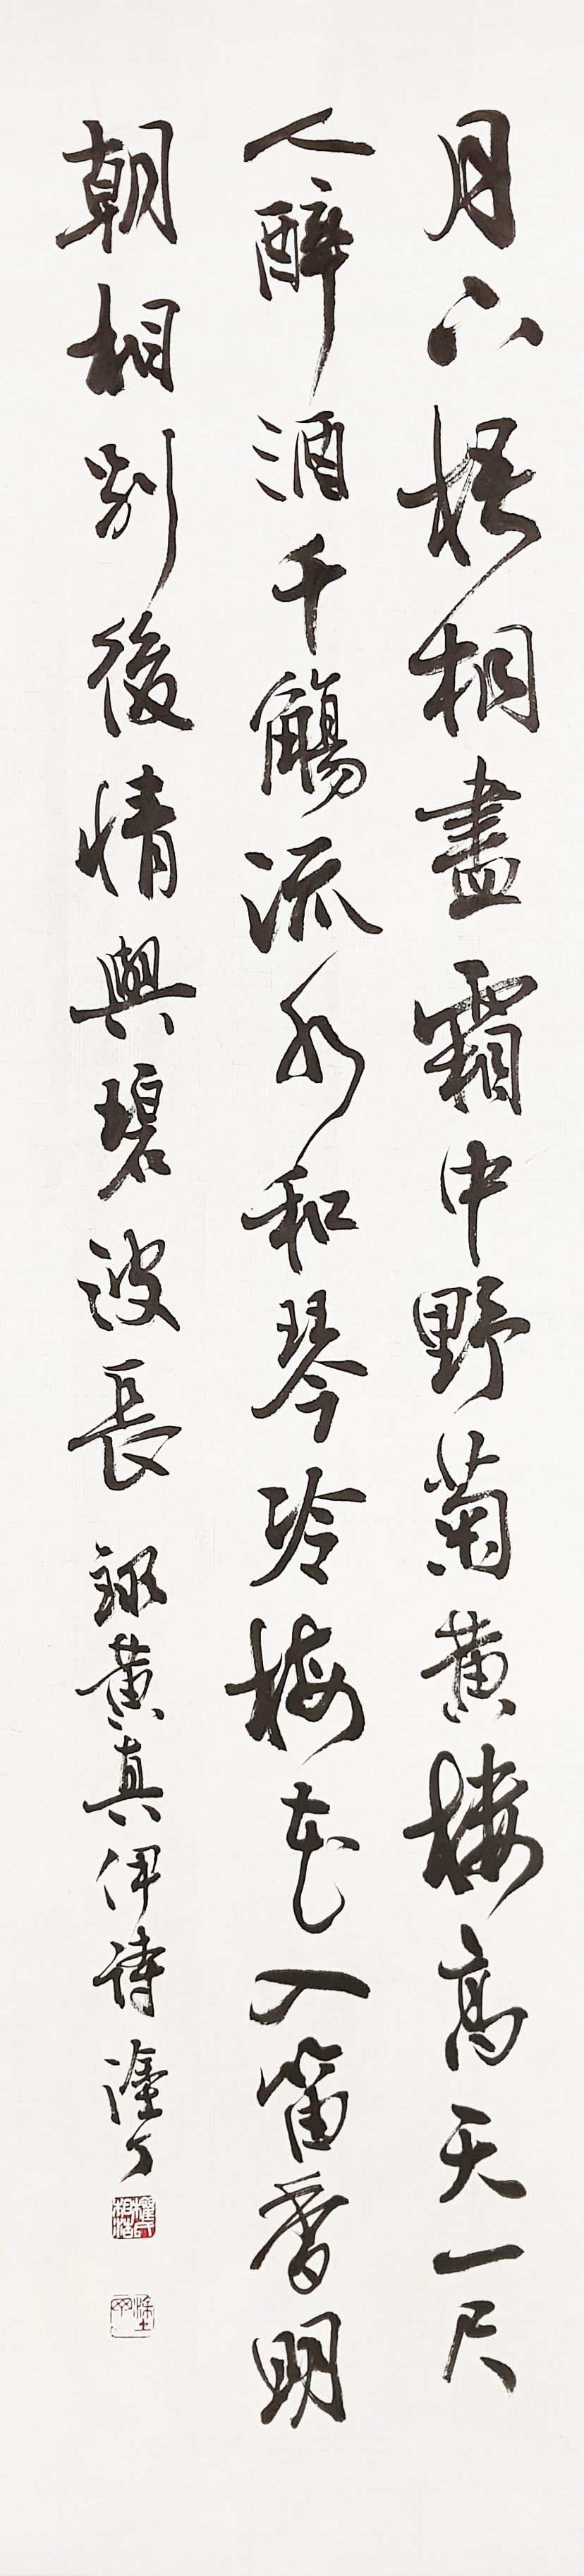 月下梧桐盡霜中野菊黃樓高天一尺
人醉酒千觴流水和琴冷梅花入笛香明
朝相別後情與碧波長 錄黃真伊詩 塗丁
權氏相浩
塗丁